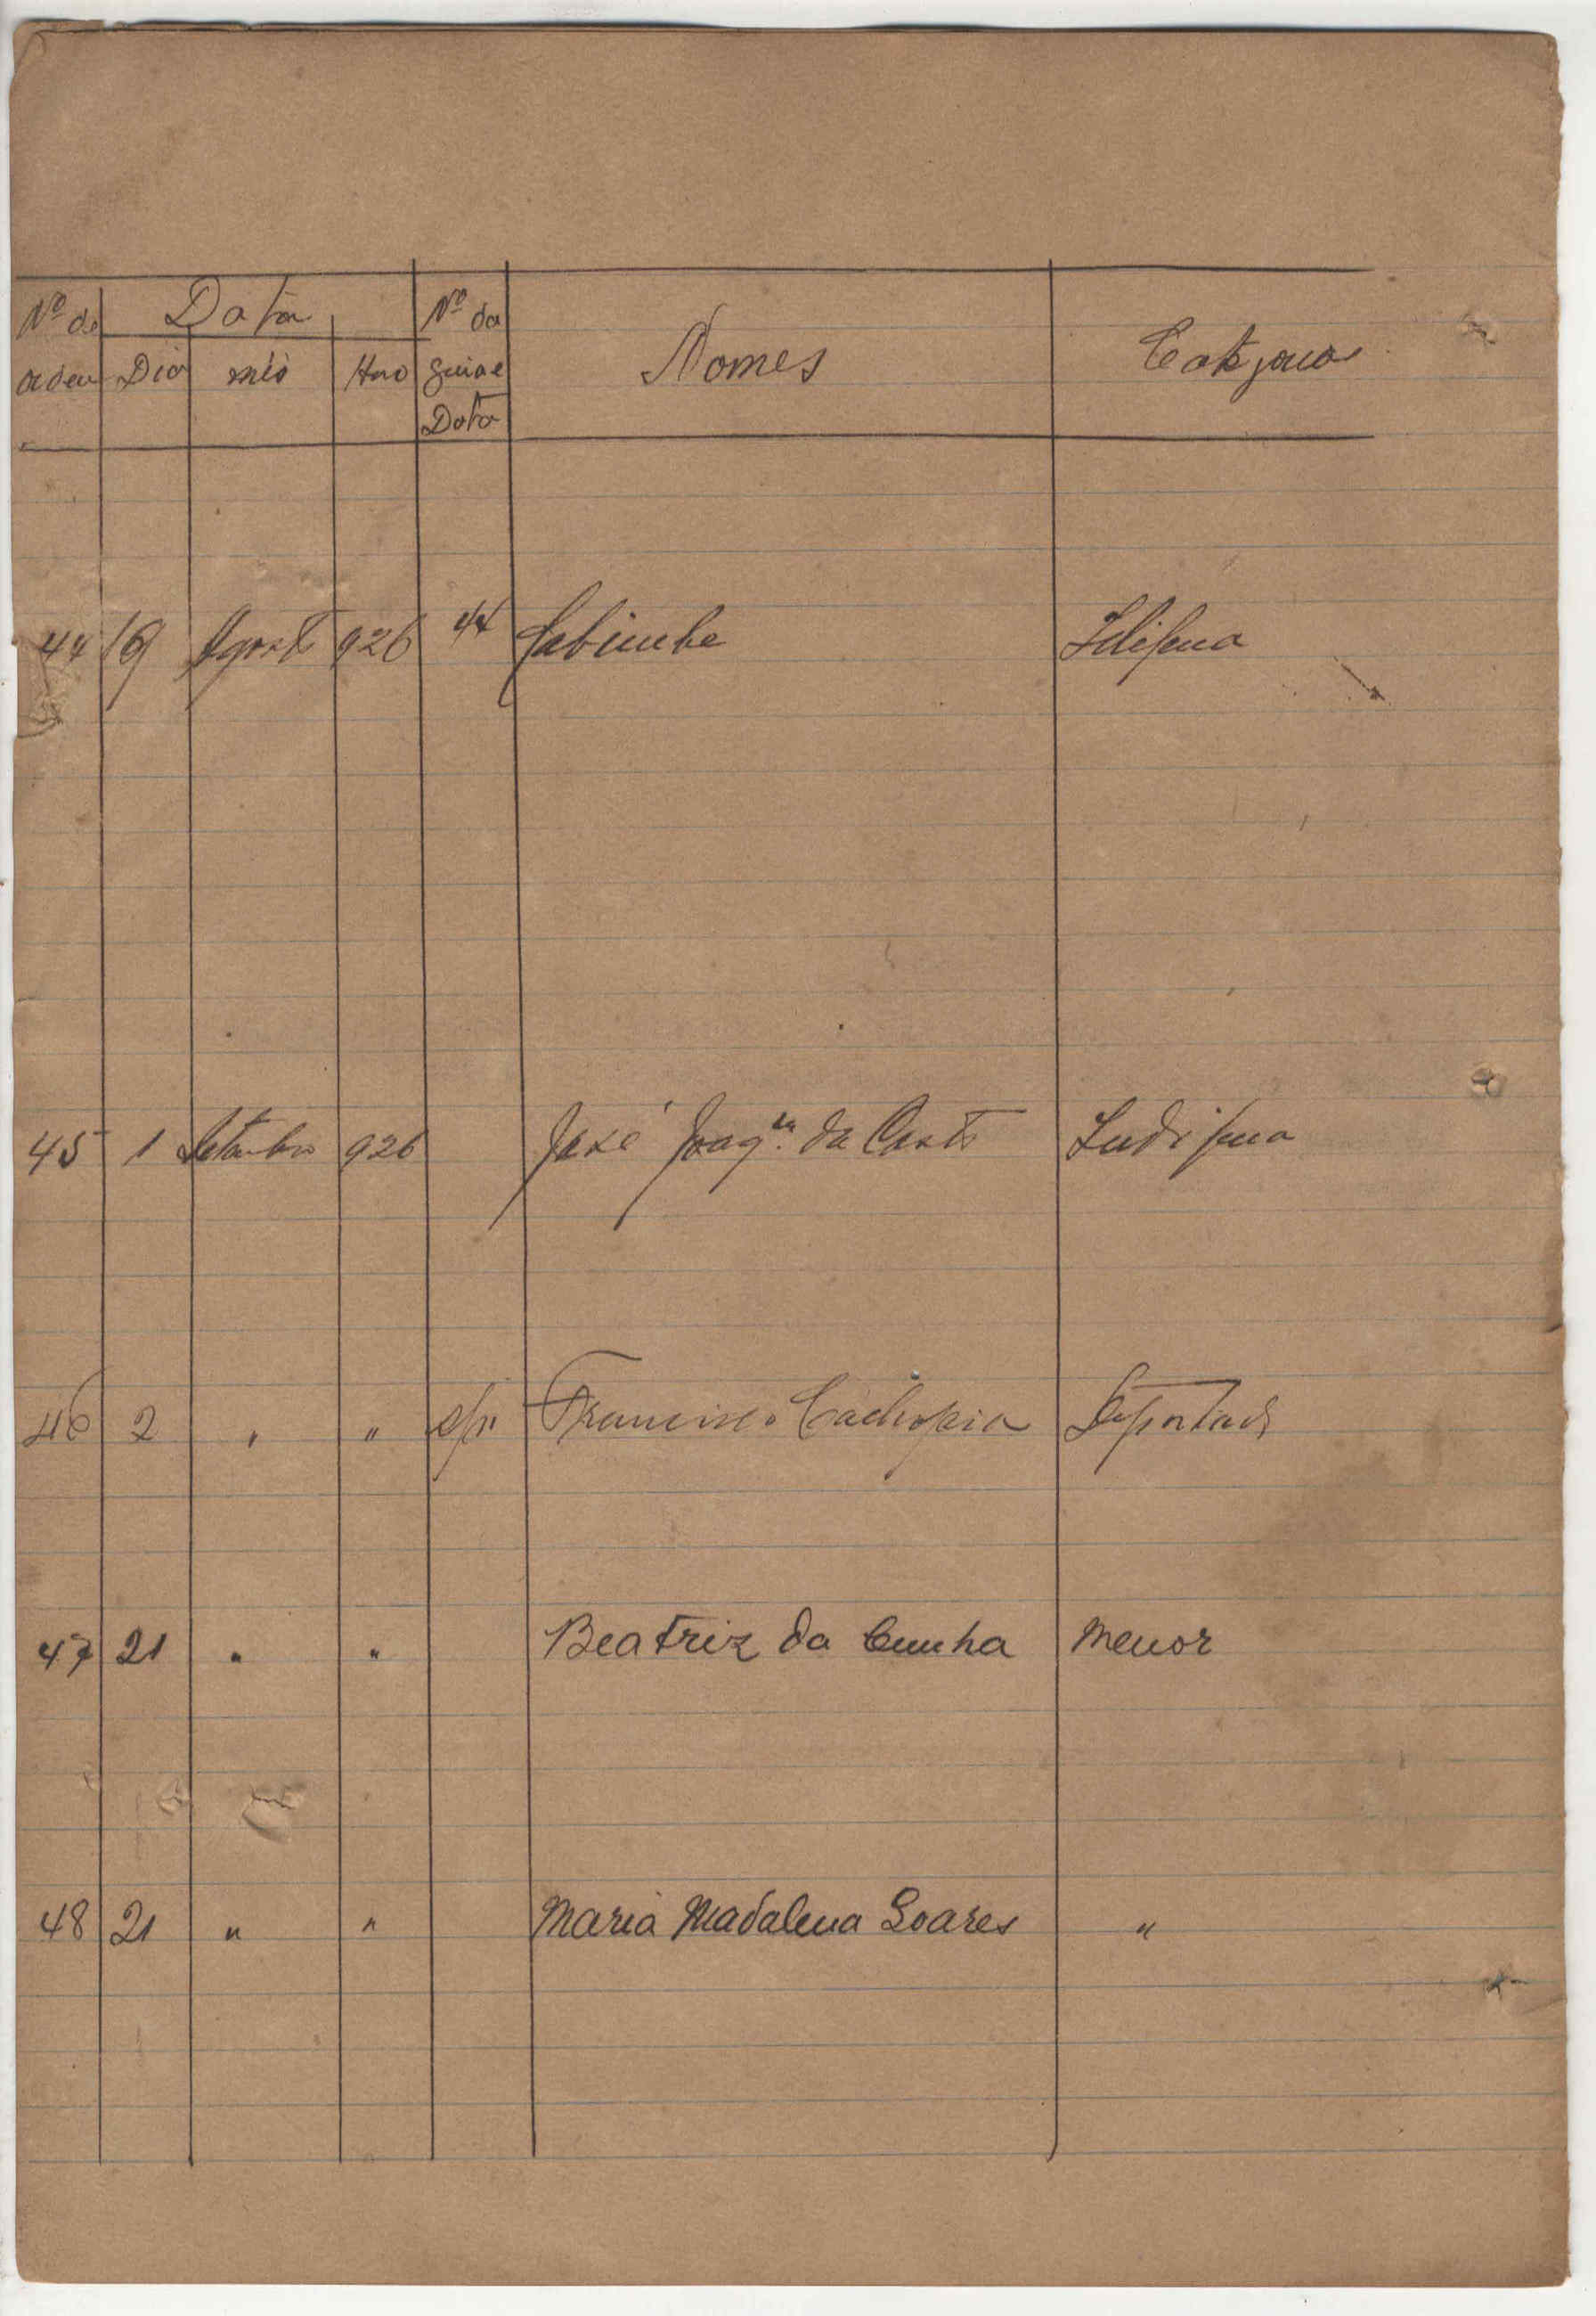 Nº de Data Nº da
ordem Dia mês Ano guia e Nomes Categorias
Data
44 19 Agosto 926 44
45 1 Setembro 926 José Joaqm. da Costa Indigena
46 2 " " s/n Francisco Cachopia Deportado
47 21 " " Beatriz da Cunha Menor
48 21 " " Maria Madalena Soares "